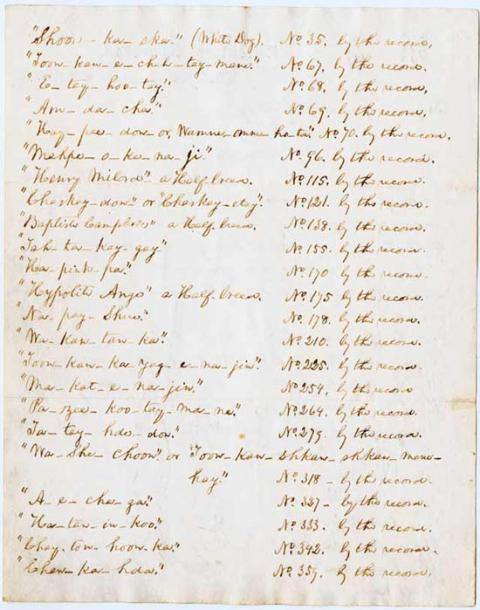 "Shoon-ka-ska." (White Dog). No. 35. by the record.
"Toon-kan-e-chah-tay-mane." No. 67. by the record.
"E-tay-hoo-tay." No. 68. by the record.
"Am-da-cha." No. 69. by the record.
"Hay-pee-don or, Wamne-omne-ho-ta." No. 70. by the record.
"Mahpe-o-ke-na-ji." No. 96. by the record.
"Henry Milord" a Half breed. No. 115. by the record.
"Chaskay-don" or "Chaskay-etay." No. 121. by the record.
"Baptiste Campbell" a Half breed. No. 138. by the record.
"Tah-ta-kay-gay." No. 155. by the record.
"Ha-pink-pa." No. 170 by the record.
"Hypolite Ange" a Half breed. No. 175 by the record.
"Na-pay-Shue." No. 178. by the record.
"Wa-kan-tan-ka." No. 210. by the record.
"Toon-kan-ka-yag-e-na-jin." No. 225. by the record.
"Ma-kat-e-na-jin." No. 254. by the record
"Pa-zee-koo-tay-ma-ne." No. 264. by the record.
"Ta-tay-hde-don." No. 279. by the record.
"Wa-She-choon." or "Toon-kan-shkan-shkan-mene-
hay." No. 318 - by the record.
"A-e-cha-ga." No. 327 - by the record.
"Ha-tan-in-koo." No. 333. by the record.
"Chay-ton-hoon-ka." No. 342. by the record.
"Chan-ka-hda." No. 359. by the record.